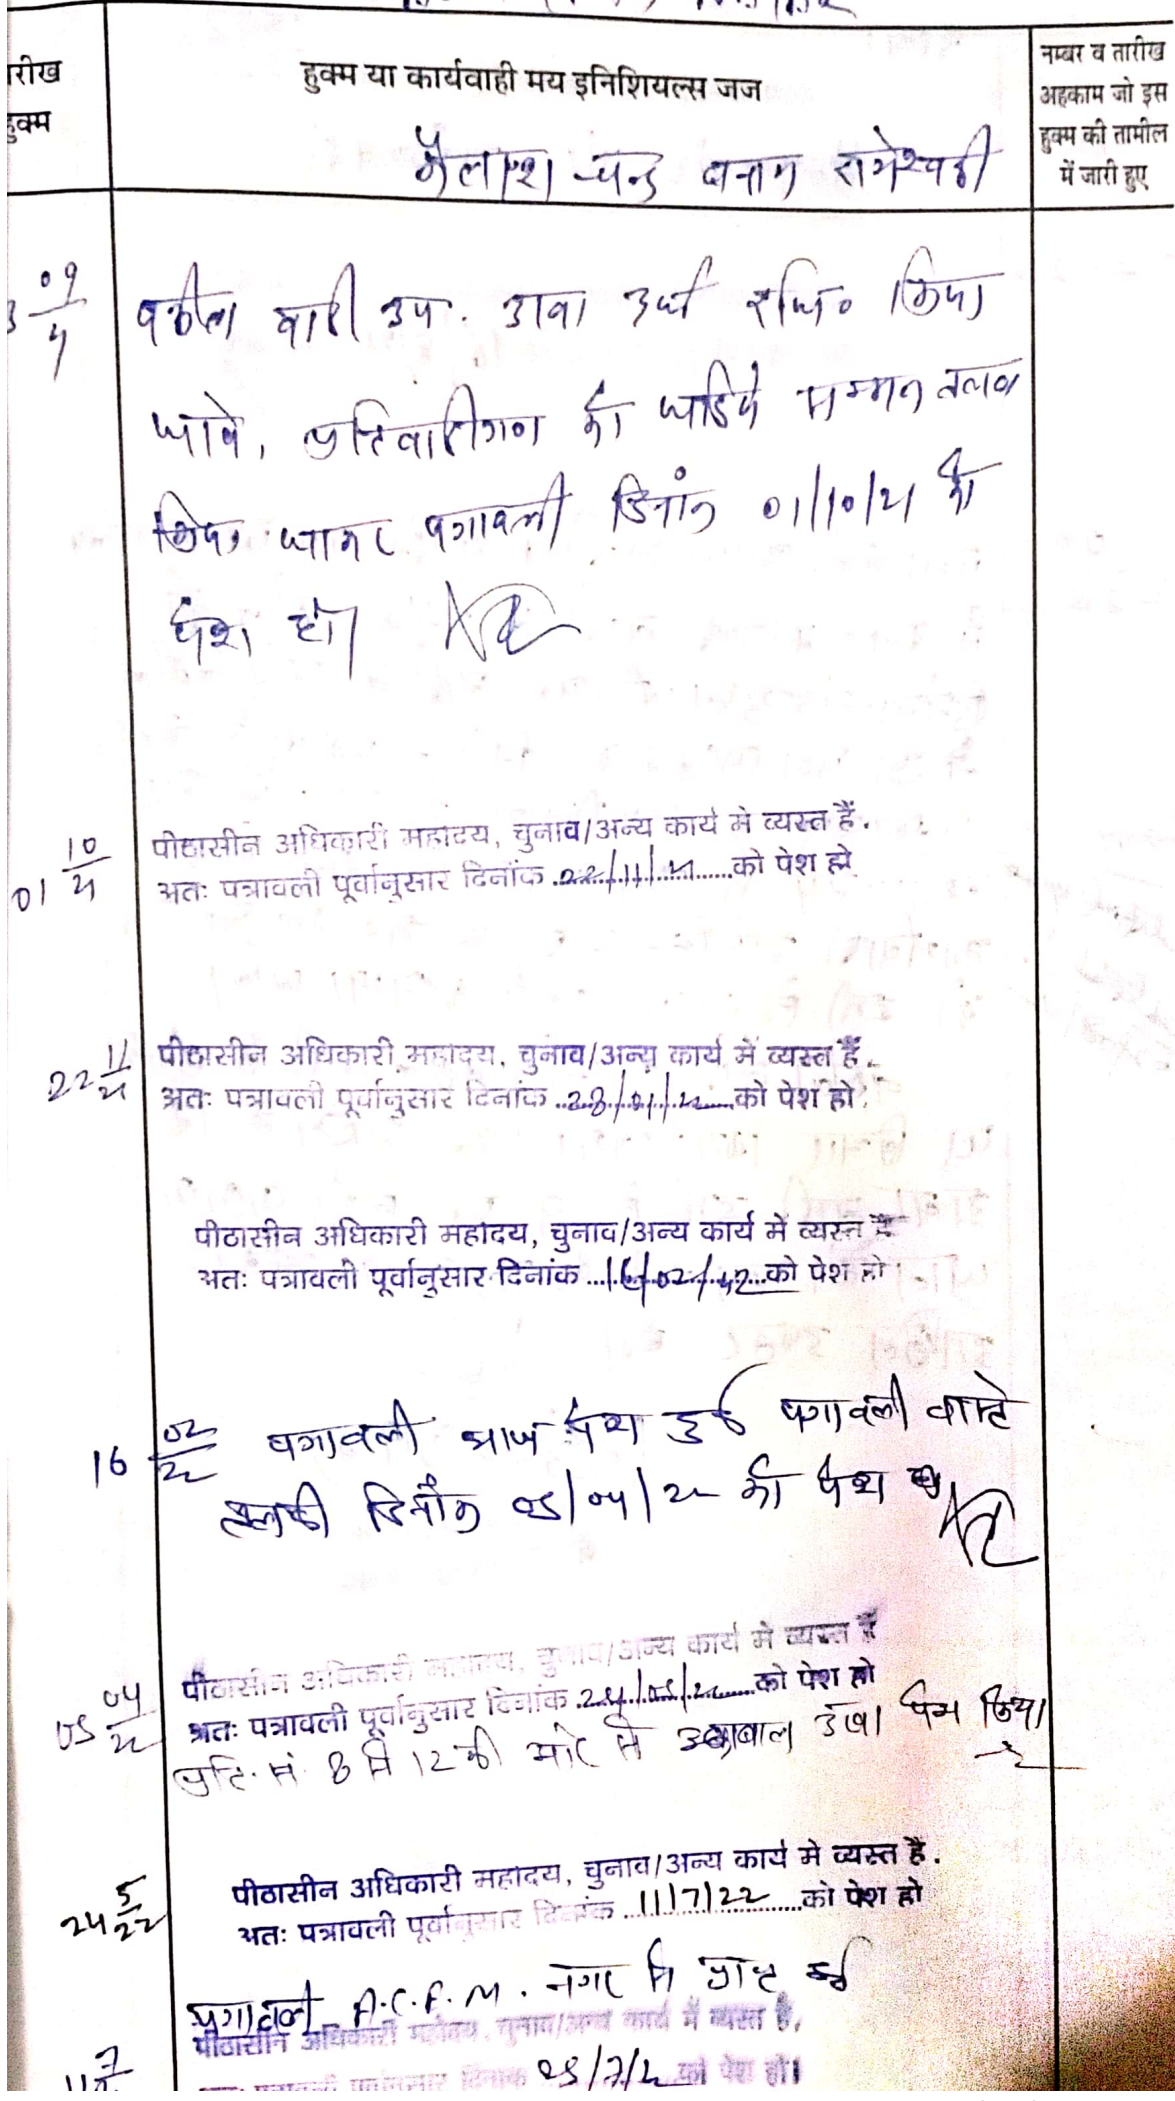 तारीख
हुक्म
हुक्म या कार्यवाही मय इनिशियल्स जज
नम्बर व तारीख
अहकाम जो इस
हुक्म की तामील
में जारी हुए
कैलाश चन्द बनाम रामेश्वरी
09
वकील वादी उप. दावा दर्ज रजि० किया
जावे, प्रतिवादीगण को जरिये सम्मन तलब
किया जाकर पत्रावली दिनांक 01/10/21 को
पेश हो।
01 10/21
पीठासीन अधिकारी महोदय, चुनाव/अन्य कार्य मे व्यस्त हैं.
अतः पत्रावली पूर्वानुसार दिनांक 22/11/21 को पेश हो
22 11/21
पीठासीन अधिकारी महोदय, चुनाव/अन्य कार्य में व्यस्त हैं.
अतः पत्रावली पूर्वानुसार दिनांक 28/01/22 को पेश हो
पीठासीन अधिकारी महोदय, चुनाव/अन्य कार्य में व्यस्त हैं
अतः पत्रावली पूर्वानुसार दिनांक 16/02/22 को पेश हो
16 02/22
पत्रावली आज पेश हुई पत्रावली वास्ते
तलबी दिनांक 05/04/22 को पेश हो
05 04/22
पीठासीन अधिकारी महोदय, चुनाव/अन्य कार्य मे व्यस्त हैं
अतः पत्रावली पूर्वानुसार दिनांक 24/05/22 को पेश हो
प्रति. सं 8 से 12 की ओर से पेश किया
24 5/22
पीठासीन अधिकारी महोदय, चुनाव/अन्य कार्य मे व्यस्त है.
अतः पत्रावली पूर्वानुसार दिनांक 11/7/22 को पेश हो
पत्रावली A.C.E.M. नगर से प्राप्त हुई
पीठासीन अधिकारी महोदय, चुनाव/अन्य कार्य में व्यस्त है,
अतः पत्रावली पूर्वानुसार दिनांक को पेश हो।